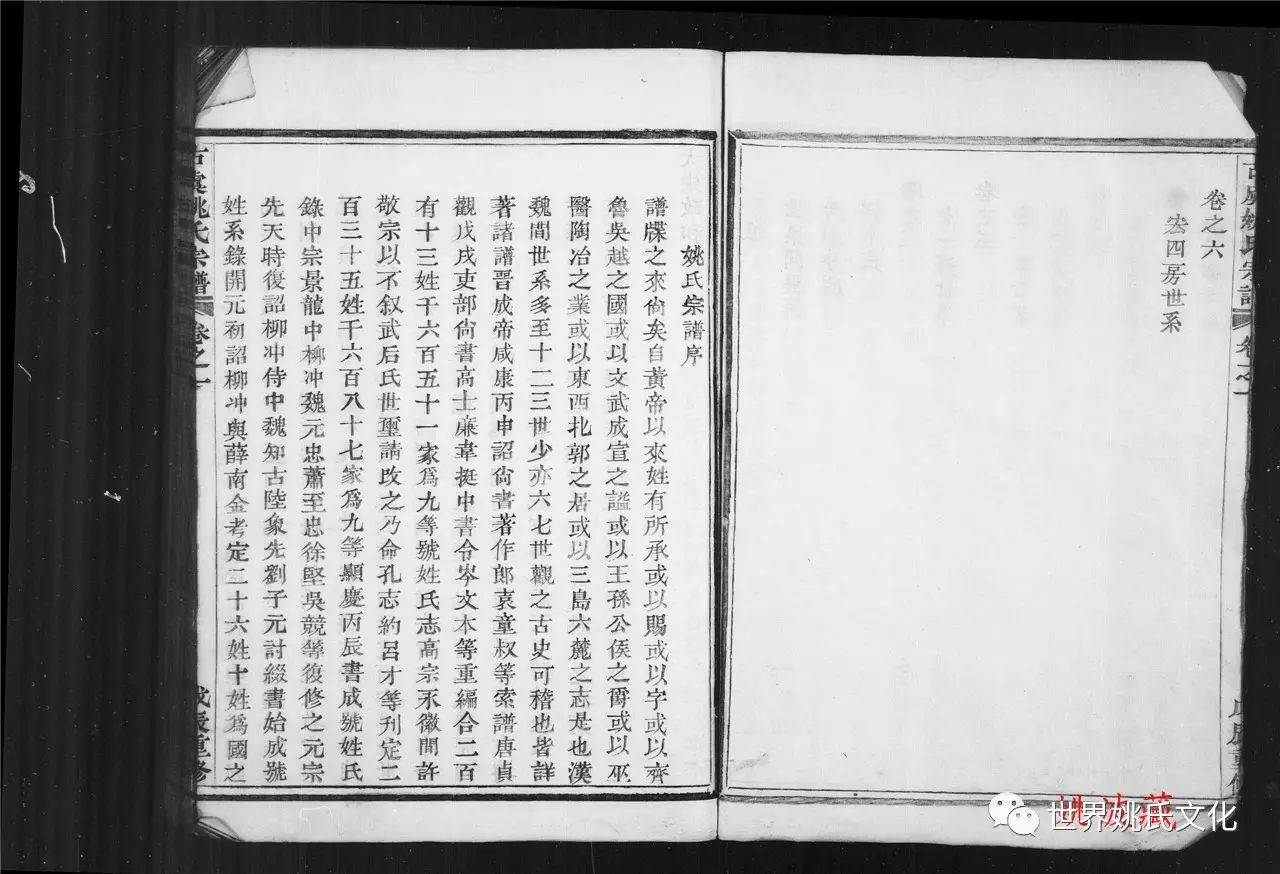 卷之六
宏四房世系
姚氏宗譜序
譜牒之來尙矣自黃帝以來姓有所承或以賜或以字或以齊
魯吳越之國或以文武成宣之謚或以王孫公侯之爵或以巫
醫陶冶之業或以東西北郭之居或以三島六麓之志是也漢
魏間世系多至十二三世少亦六七世觀之古史可稽也皆詳
著諸譜晉成帝咸康丙申詔尙書著作郎袁童叔等索譜唐貞
觀戊戌吏部尙書高士廉韋挺中書令岑文本等重編合二百
有十三姓千六百五十一家爲九等號姓氏志高宗永徽間許
敬宗以不叙武后氏世璽請改之乃命孔志約呂才等刊定二
百三十五姓千六百八十七家爲九等顯慶丙辰書成號姓氏
錄中宗景龍中柳冲魏元忠蕭至忠徐堅吳競等復修之元宗
先天時復詔柳冲侍中魏知古陸象先劉子元討綴書始成號
姓系錄開元初詔柳冲與薛南金考定二十六姓十姓爲國之
古虞姚氏宗譜 卷之一
戊辰重修
姚皮藏
世界姚氏文化